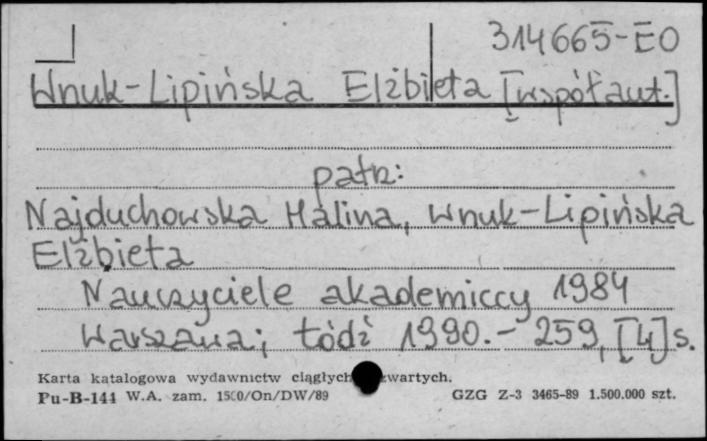 314665-EO
Wnuk-Lipińska Elżbieta [współaut.]
patrz:
Najduchowska Halina, Wnuk-Lipińska
Elżbieta
Nauczyciele akademiccy 1984
Warszawa; Łódź 1990. - 259, [4] s.
Karta katalogowa wydawnictw ciągłych zwartych.
Pu-B-141 W.A. zam. 1500/On/DW/89 GZG Z-3 3465-89 1.500.000 szt.